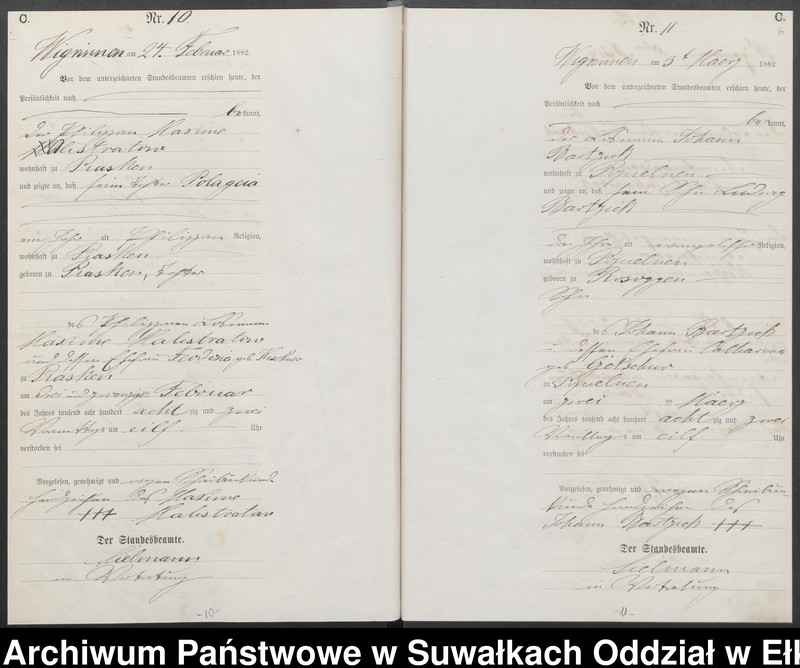 C.
Nr. 10
Wigrinnen am 24. Februar 1882.
Vor dem unterzeichneten Standesbeamten erschien heute, der
Persönlichkeit nach
bekannt,
der Philippon Maxime
Kalistratow
wohnhaft zu Piasken
und zeigte an, daß seine Tochter Polageia
ein Jahr alt Philippon Religion,
wohnhaft zu Piasken
geboren zu Piasken, Tochter
des Philipponen Losmann
Maxime Kalistratow
und dessen Ehefrau Feodezia geb.
zu Piasken
am drei und zwanzig Februar
des Jahres tausend acht hundert achtzig und zwei
Vormittags um eilf Uhr
verstorben sei
Vorgelesen, genehmigt und wegen Schreibunkunde
Handzeichen des Maxime
+++ Kalistratow
Der Standesbeamte.
Sielmann
in Vertretung
-10-
C.
6
Nr. 11
Wigrinnen am 3t Maerz 1882.
Vor dem unterzeichneten Standesbeamten erschien heute, der
Persönlichkeit nach
bekannt,
der Losmann Johann
Bartzick
wohnhaft zu
und zeigte an, daß sein Sohn Ludwig
Bartzick
drei Jahre alt evangelischer Religion,
wohnhaft zu
geboren zu
Sohn
des Johann Bartzick
u. dessen Ehefrau Catharina
geb.
zu
am zwei ten Maerz
des Jahres tausend acht hundert achtzig und zwei
Vormittags um eilf Uhr
verstorben sei
Vorgelesen, genehmigt und wegen Schreibun-
kunde Handzeichen des
Johann Bartzick +++
Der Standesbeamte.
Sielmann
in Vertretung
-11-
Archiwum Państwowe w Suwałkach Oddział w Eł